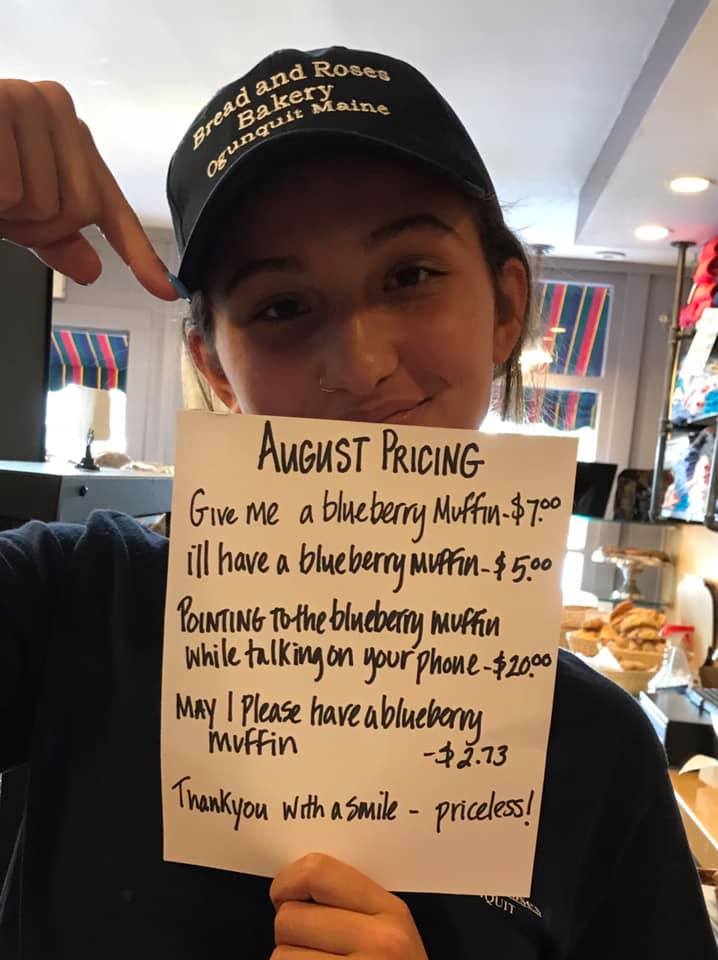 Bread and Roses
Bakery
Ogunquit Maine
AUGUST PRICING
Give me a blueberry Muffin-$7.00
ill have a blueberry MUFFIN-$5.00
POINTING to the blueberry muffin
while talking on your phone-$20.00
MAY I Please have a blueberry
muffin -$2.73
Thankyou with a smile - priceless!
QUIT